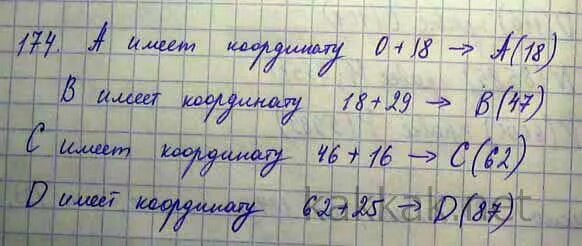 174. A имеет координату 0+18 → A(18)
B имеет координату 18+29 → B(47)
C имеет координату 46+16 → C(62)
D имеет координату 62+25 → D(87)